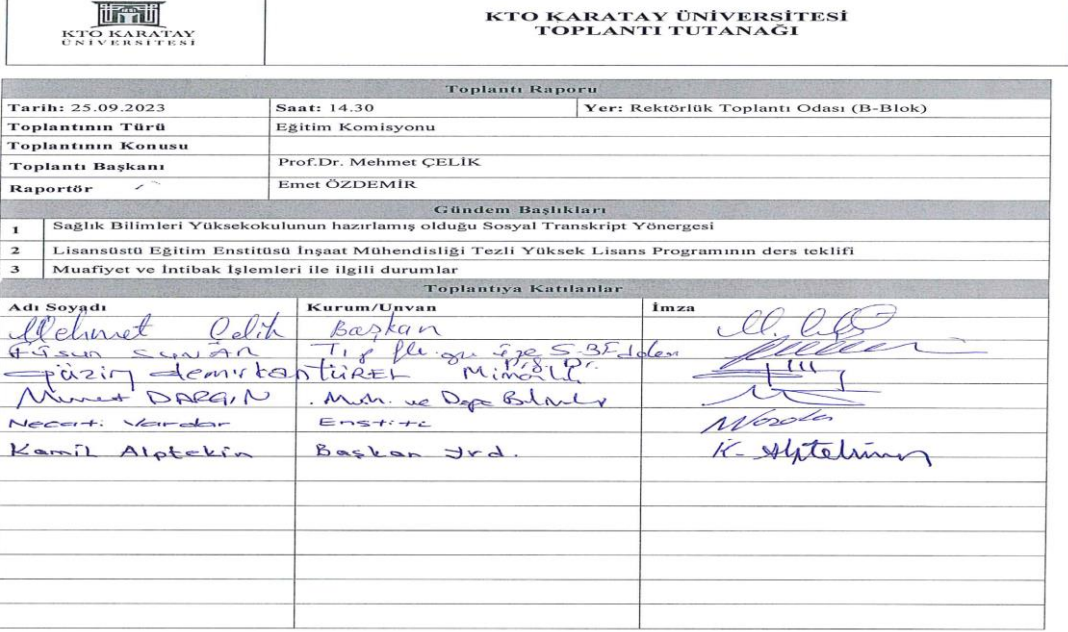 KTO KARATAY
ÜNİVERSİTESİ
KTO KARATAY ÜNİVERSİTESİ
TOPLANTI TUTANAĞI
Toplantı Raporu
Tarih: 25.09.2023 Saat: 14.30 Yer: Rektörlük Toplantı Odası (B-Blok)
Toplantının Türü Eğitim Komisyonu
Toplantının Konusu
Toplantı Başkanı Prof.Dr. Mehmet ÇELİK
Raportör Emet ÖZDEMİR
Gündem Başlıkları
1 Sağlık Bilimleri Yüksekokulunun hazırlamış olduğu Sosyal Transkript Yönergesi
2 Lisansüstü Eğitim Enstitüsü İnşaat Mühendisliği Tezli Yüksek Lisans Programının ders teklifi
3 Muafiyet ve İntibak İşlemleri ile ilgili durumlar
Toplantıya Katılanlar
Adı Soyadı Kurum/Unvan İmza
Mehmet Çelik Başkan
Füsun SUNAR Tıp
demirkan TÜREL
DARGIN Müh. ve Doğa
Necati Vardar Enstitü
Kamil Alptekin Başkan Yrd. K. Alptekin